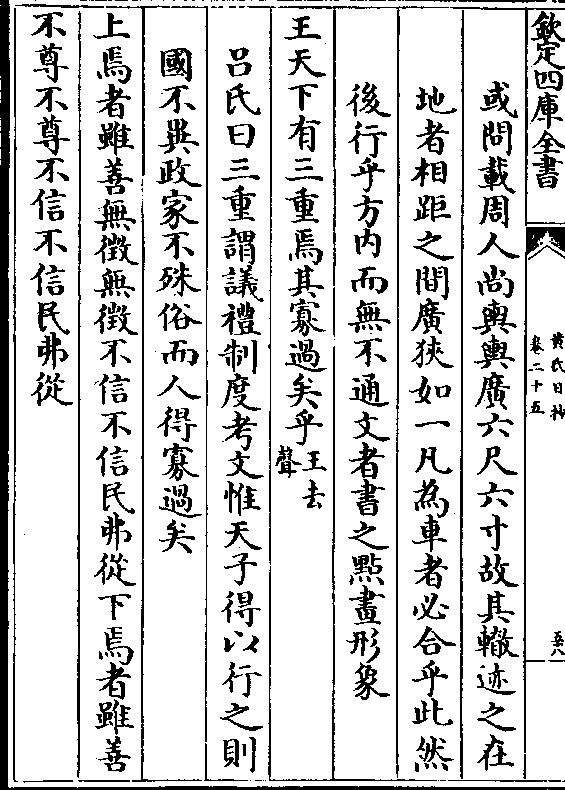 欽定四庫全書
黃氏日抄
卷二十五
或問載周人尚輿輿廣六尺六寸故其轍迹之在
地者相距之間廣狹如一凡為車者必合乎此然
後行乎方内而無不通文者書之點畫形象
王天下有三重焉其寡過矣乎王去
聲
吕氏曰三重謂議禮制度考文惟天子得以行之則
國不異政家不殊俗而人得寡過矣
上焉者雖善無徵無徵不信不信民弗從下焉者雖善
不尊不尊不信不信民弗從